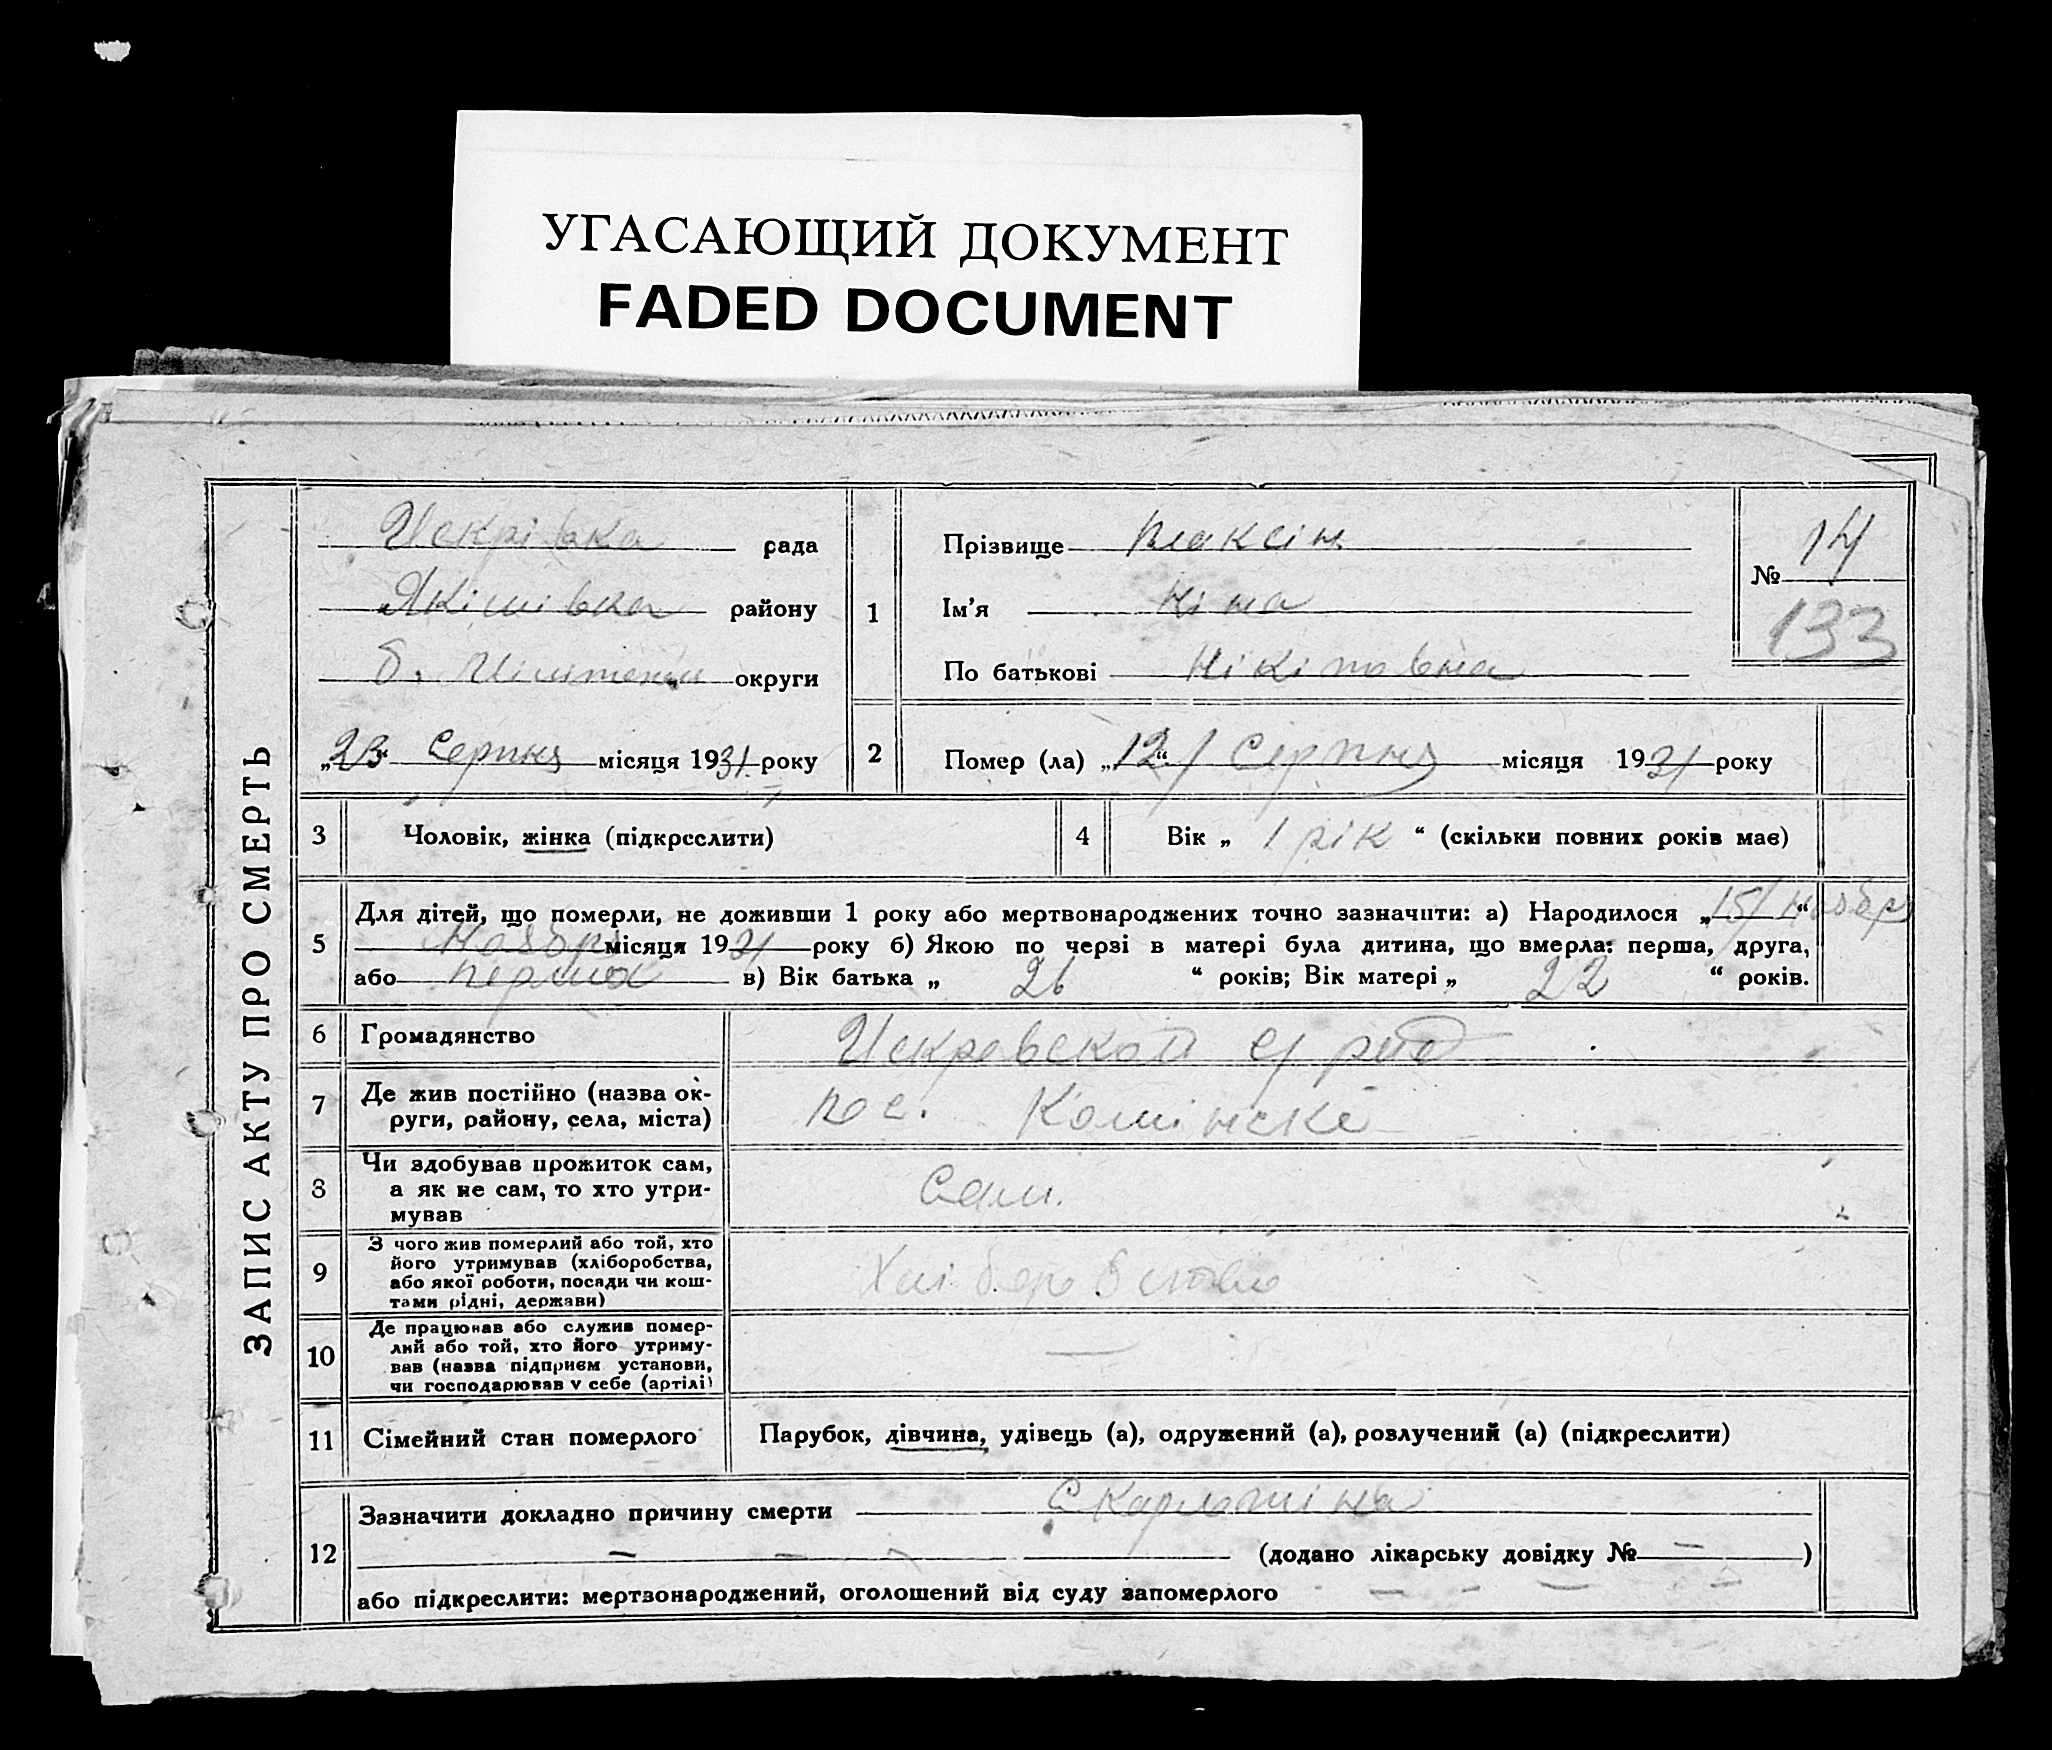 УГАСАЮЩИЙ ДОКУМЕНТ
FADED DOCUMENT
ЗАПИС АКТУ ПРО СМЕРТЬ
Искрівка рада
Якімівка району
б. округи
„23“ Серпня місяця 1931 року
1
Прізвище Плаксін
Ім’я Ніна
По батькові Нікітовна
№ 14
133
2
Помер (ла) „12“ Серпня місяця 1931 року
3
Чоловік, жінка (підкреслити)
4
Вік „ 1 рік “ (скільки повних років має)
5
Для дітей, що померли, не доживши 1 року або мертвонароджених точно зазначити: а) Народилося „15“ Ноябр
Ноябр місяця 1931 року б) Якою по черзі в матері була дитина, що вмерла: перша, друга,
або перша в) Вік батька „ 26 “ років; Вік матері „ 22 “ років.
6
Громадянство
Искровской
7
Де жив постійно (назва ок-
руги, району, села, міста)
пос.
8
Чи здобував прожиток сам,
а як не сам, то хто утри-
мував
Сам.
9
З чого жив померлий або той, хто
його утримував (хліборобства,
або якої роботи, посади чи кош-
тами рідні, держави)
10
Де працював або служив помер-
лий або той, хто його утриму-
вав (назва підприєм установи,
чи господарював у себе (артілі)
—
11
Сімейний стан померлого
Парубок, дівчина, удівець (а), одружений (а), розлучений (а) (підкреслити)
12
Зазначити докладно причину смерти Скарлатіна
(додано лікарську довідку № — )
або підкреслити: мертвонароджений, оголошений від суду запомерлого